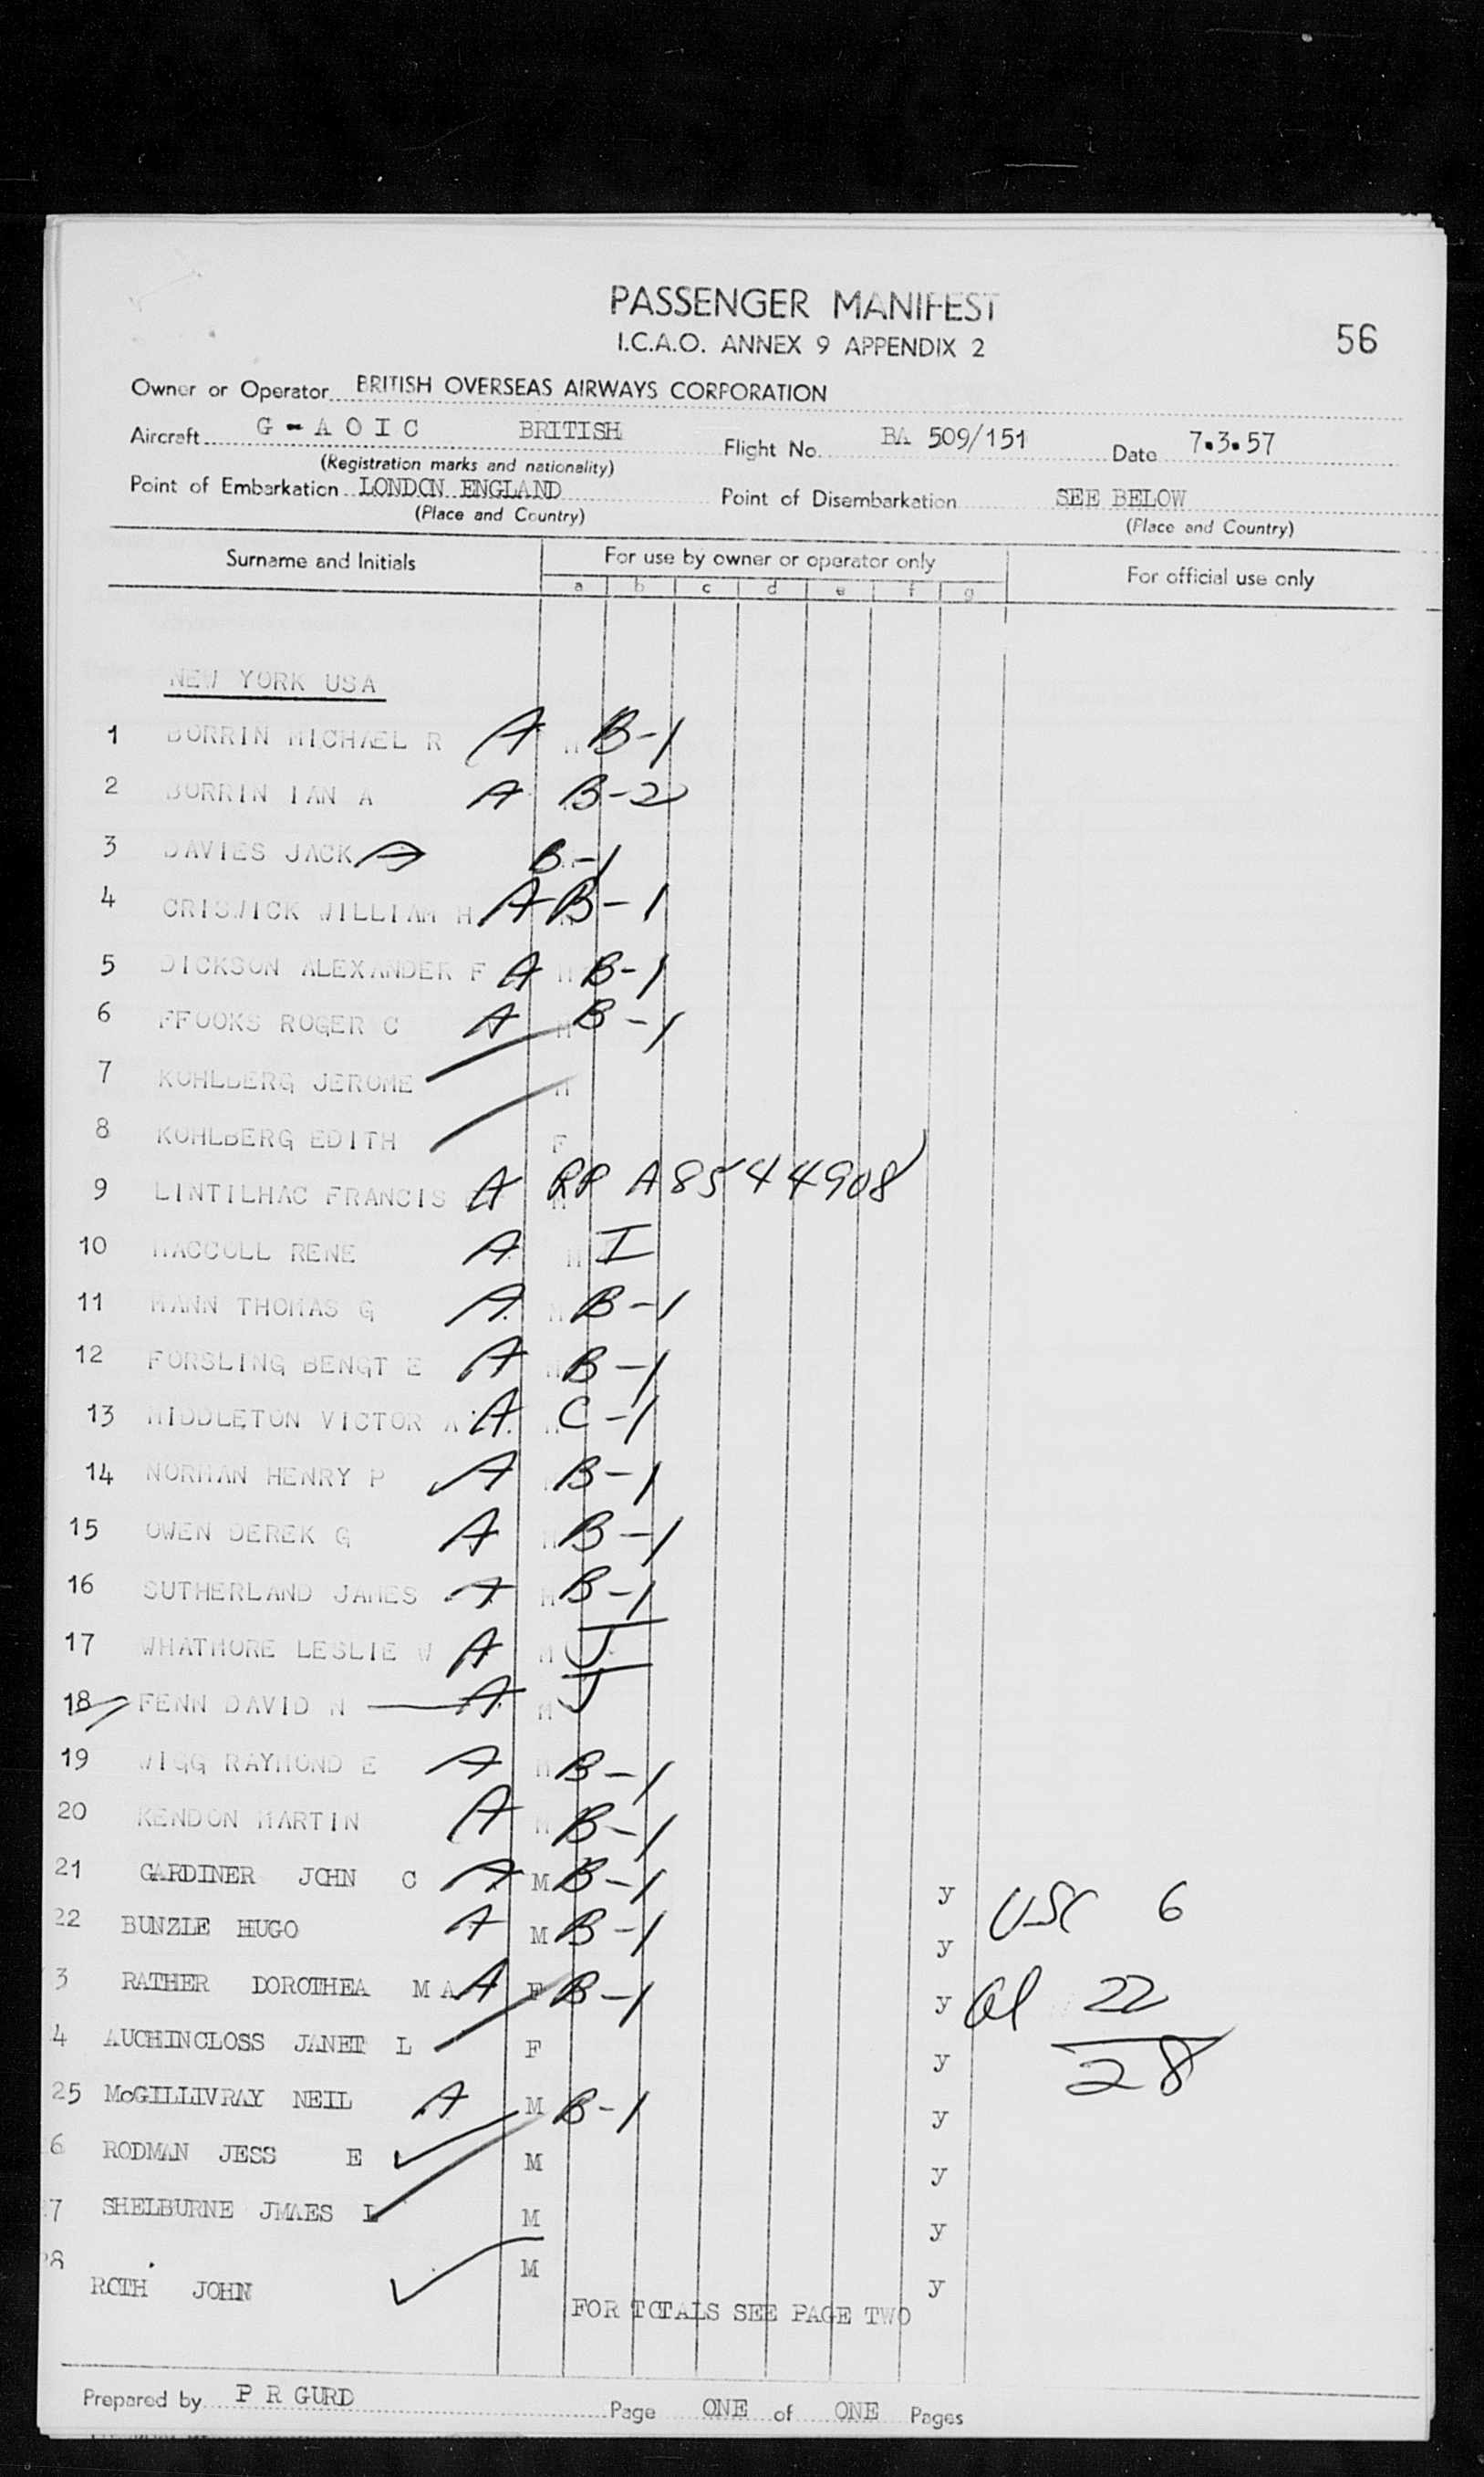 PASSENGER MANIFEST
I.C.A.O. ANNEX 9 APPENDIX 2
56
Owner or Operator BRITISH OVERSEAS AIRWAYS CORPORATION
Aircraft G - A O I C BRITISH Flight No. BA 509/151 Date 7.3.57
(Registration marks and nationality)
Point of Embarkation LONDON ENGLAND Point of Disembarkation SEE BELOW
(Place and Country) (Place and Country)
Surname and Initials For use by owner or operator only For official use only
a b c d e f g
NEW YORK USA
1 BORRIN MICHAEL R A M B-1
2 BORRIN IAN A A B-2
3 DAVIES JACK A B-1
4 CRISWICK WILLIAM H A B-1
5 DICKSON ALEXANDER F A M B-1
6 FFOOKS ROGER C A M B-1
7 KOHLBERG JEROME M
8 KOHLBERG EDITH F
9 LINTILHAC FRANCIS A M RP A8544908
10 MACCOLL RENE A M I
11 MANN THOMAS G A M B-1
12 FORSLING BENGT E A M B-1
13 MIDDLETON VICTOR A A C-1
14 NORMAN HENRY P A B-1
15 OWEN DEREK G A M B-1
16 SUTHERLAND JAMES A M B-1
17 WHATMORE LESLIE W A M J
18 FENN DAVID N A M J
19 WIGG RAYMOND E A M B-1
20 KENDON MARTIN A M B-1
21 GARDINER JOHN C A M B-1 y USC 6
22 BUNZLE HUGO A M B-1 y
3 RATHER DOROTHEA M A A F B-1 y al 22
4 AUCHINCLOSS JANET L F y 28
25 McGILLIVRAY NEIL A M B-1 y
6 RODMAN JESS E M y
7 SHELBURNE JMAES L M y
8 ROTH JOHN M y
FOR TOTALS SEE PAGE TWO
Prepared by P R GURD Page ONE of ONE Pages